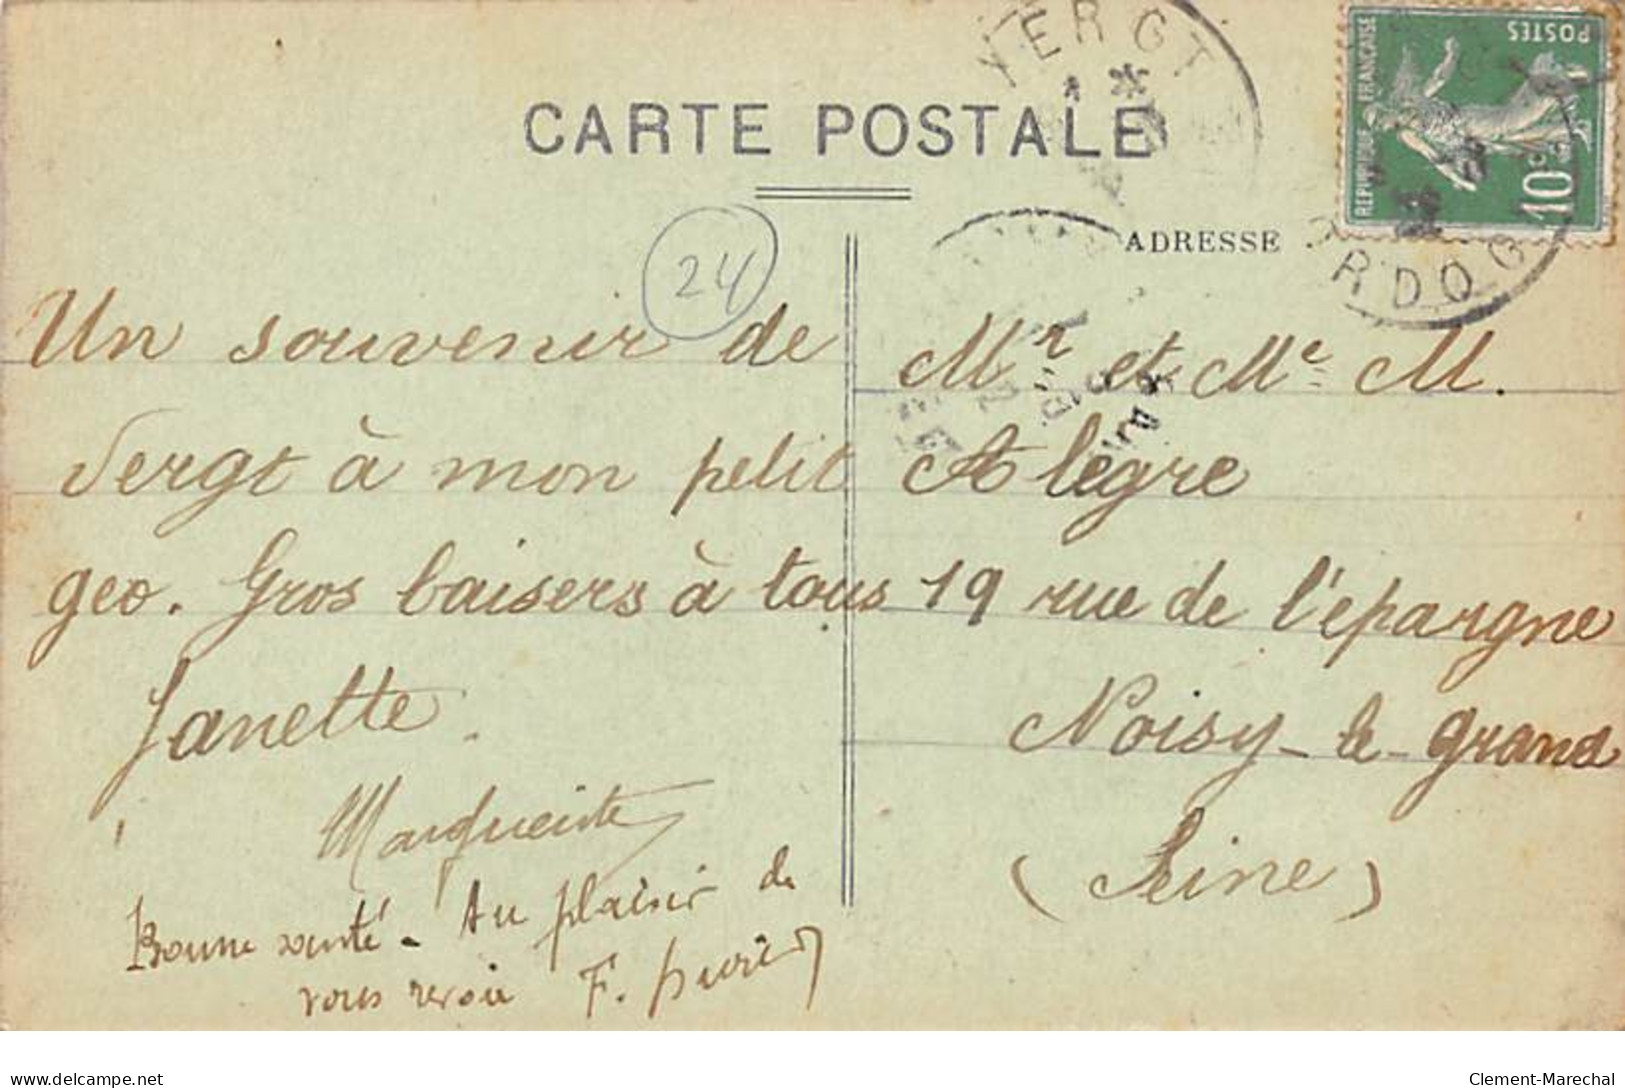 CARTE POSTALE
VERGT
RDOG
REPUBLIQUE FRANÇAISE
POSTES
10c
ADRESSE
24
Un souvenir de
Vergt à mon petit
geo. Gros baisers à tous
Janette.
Marguerite
Bonne santé - Au plaisir de
vous revoir F.
Mr et Me M.
Alègre
19 rue de l'épargne
Noisy-le-grand
(Seine)
delcampe.net
Clement-Marechal